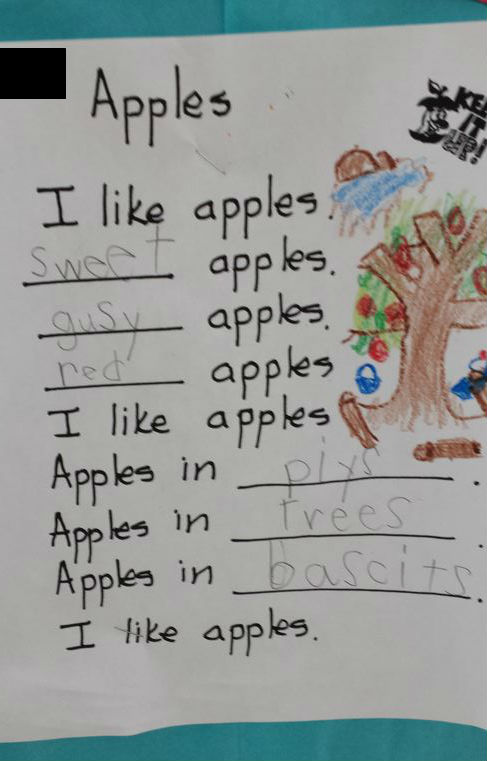 Apples
KEEP
IT
UP!
I like apples.
sweet apples.
gusy apples.
red apples
I like apples
Apples in piys.
Apples in trees.
Apples in bascits.
I like apples.